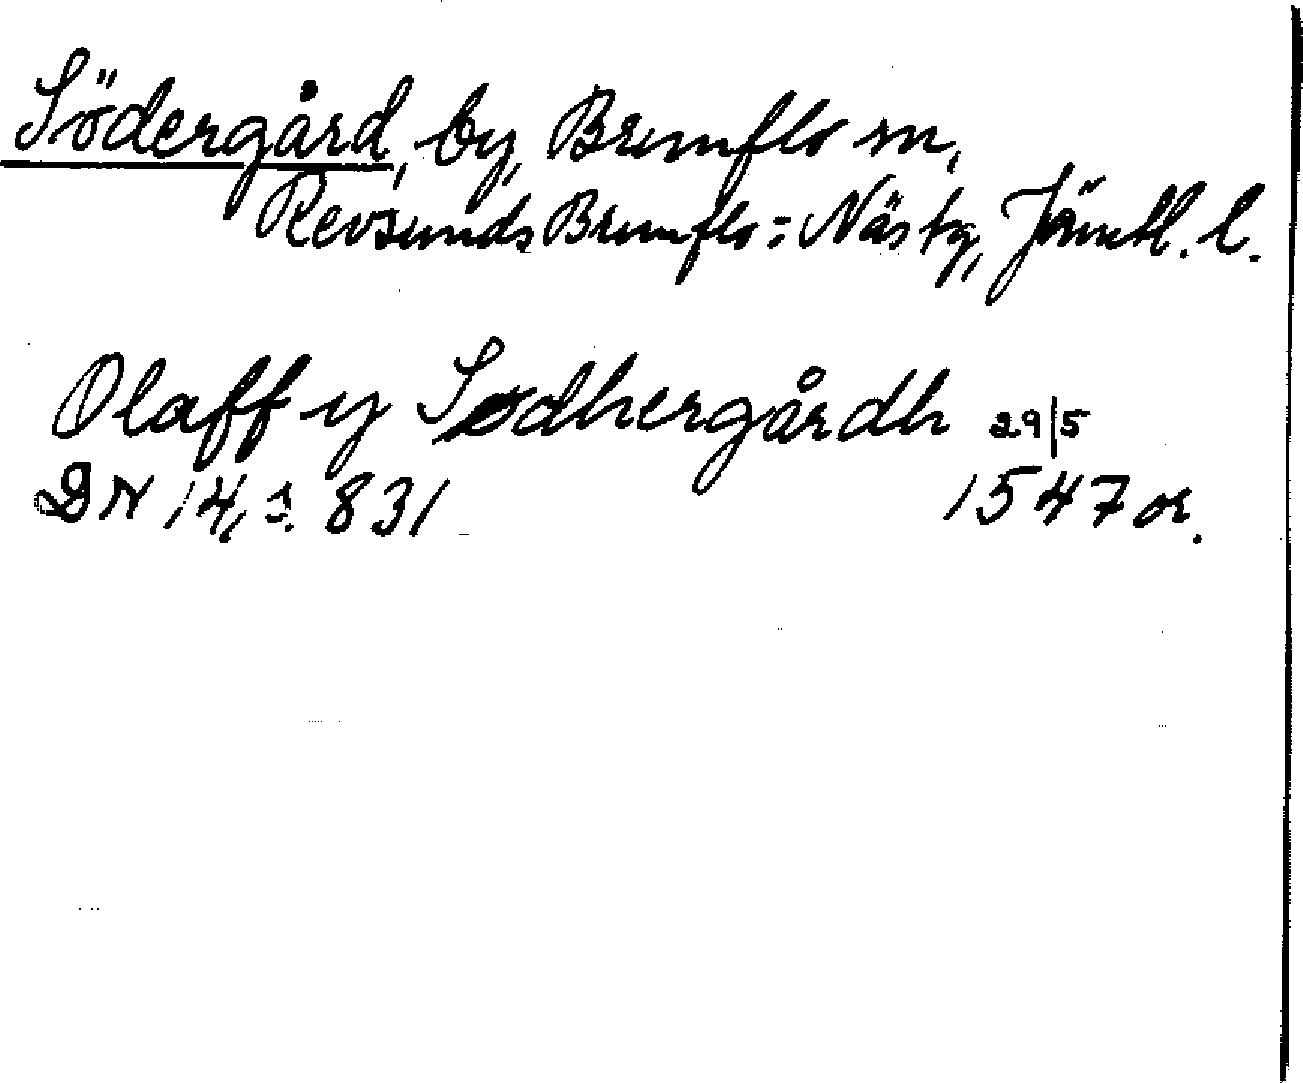 Södergård, by, Brunflo sn,
Revsunds Brunflo = Näs tg, Jämtl. l.
Olaff y Sødhergårdh 29/5
DN 14, s. 831 1547 or.